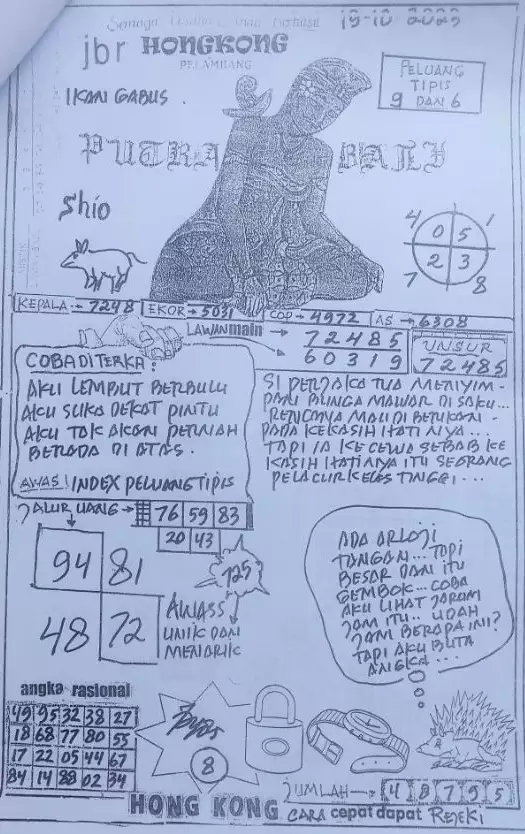 Semoga 15-10-2023
jbr HONGKONG
PELAMBANG
PELUANG
TIPIS
9 DAN 6
IKAN GABUS.
PUTRA BALI
Shio
4 1
0 5
2 3
7 8
KEPALA→7248 EKOR→5031 COP→4972 AS→6308
LAWAN main → 72485
60319
UNSUR
72485
COBA DITERKA:
AKU LEMBUT BERBULU
AKU SUKA DEKAT PINTU
AKU TAK AKAN PERNAH
BERADA DI ATAS.
AWAS! INDEX PELUANG TIPIS
SI PERJAKA TUA MENYIM-
PAN BUNGA MAWAR DI SAKU...
RENCANYA MAU DI BERIKAN-
PADA KEKASIH HATI NYA...
TAPI IA KECEWA SEBAB KE
KASIH HATINYA ITU SEORANG
PELACUR KELAS TINGGI...
JALUR UANG→ 76 59 83
20 43
94 81
48 72
725
AWASS
UNIK DAN
MENARIK
ADA ARLOJI
TANGAN... TAPI
BESAR DAN ITU
GEMBOK... COBA
AKU LIHAT JARUM
JAM ITU.. UDAH
JAM BERAPA INI?
TAPI AKU BUTA
ANGKA...
angka rasional
49 95 32 38 27
18 68 77 80 53
17 22 05 44 67
84 14 88 02 34
8
JUMLAH→ 4 8 7 9 5
HONG KONG CARA cepat dapat REJEKI